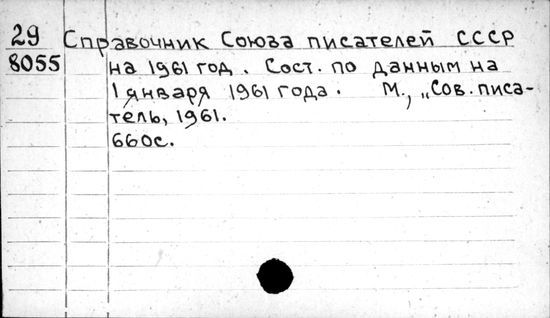 29 Справочник Союза писателей СССР
8055 на 1961 год. Сост. по данным на
1 января 1961 года. М., „Сов. писа-
тель, 1961.
660с.